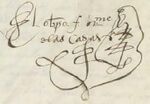 El obpo f. br.me
de las casas